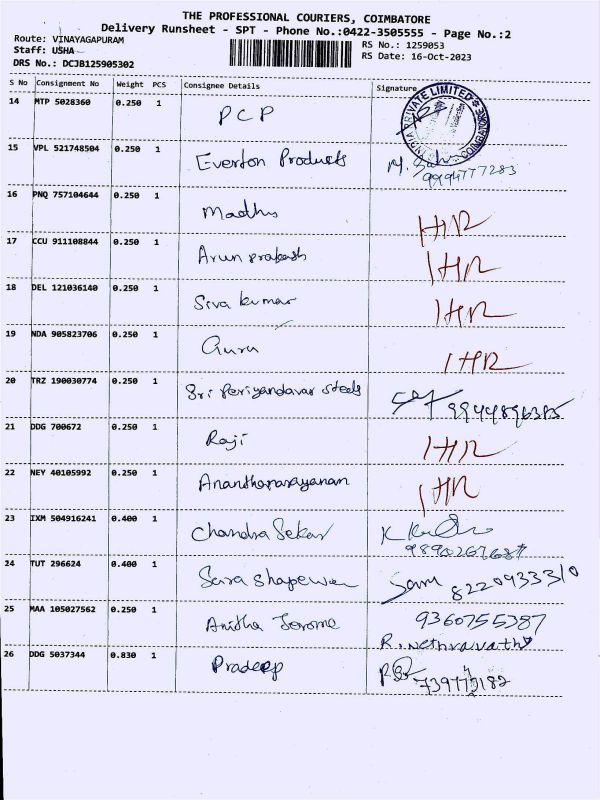 THE PROFESSIONAL COURIERS, COIMBATORE
Delivery Runsheet - SPT - Phone No.:0422-3505555 - Page No.:2
Route: VINAYAGAPURAM RS No.: 1259053
Staff: USHA RS Date: 16-Oct-2023
DRS No.: DCJB125905302
S No Consignment No Weight PCS Consignee Details Signature
14 MTP 5028360 0.250 1 PCP
PRIVATE LIMITED COIMBATORE INDIA
15 VPL 521748504 0.250 1 Everton Products
9994777283
16 PNQ 757104644 0.250 1 Madhu IHR
17 CCU 911108844 0.250 1 Arun prakash IHR
18 DEL 121036140 0.250 1 Siva kumar IHR
19 NDA 905823706 0.250 1 Guru IHR
20 TRZ 190030774 0.250 1 Sri Periyandavar Steels
21 DDG 700672 0.250 1 Raji IHR
22 NEY 40105992 0.250 1 Ananthanarayanan IHR
23 IXM 504916241 0.400 1 Chandra Sekar
24 TUT 296624 0.400 1 Sara shapewear 8220933310
25 MAA 105027562 0.250 1 Anitha Jerome 9360755387
R. Nethravathi
26 DDG 5037344 0.830 1 Pradeep